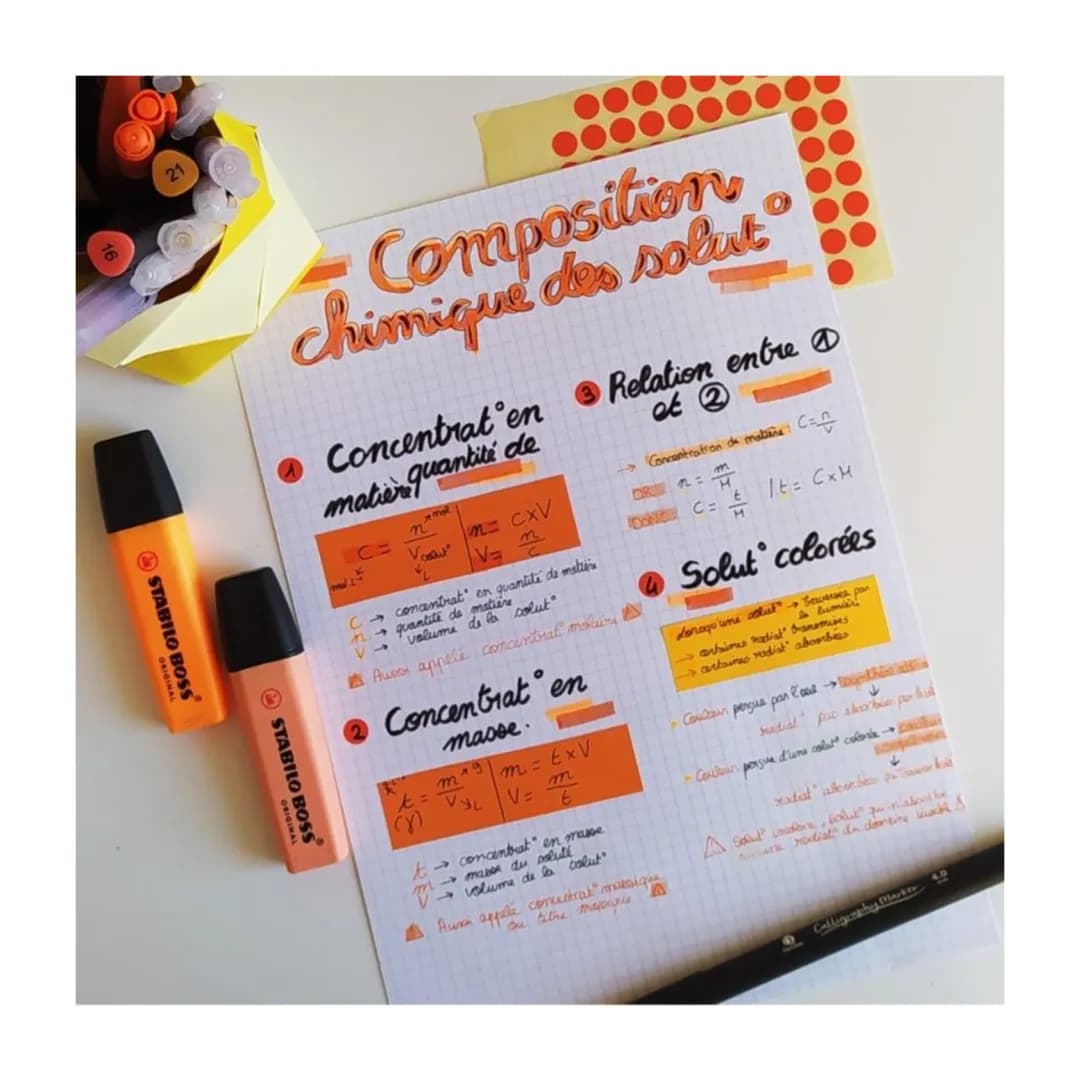 Composition
chimique des solut°
1 Concentrat° en
quantité de
matière
C = n → mol / V solut°
mol.L⁻¹
L
n = C×V
V = n/C
C → concentrat° en quantité de matière
n → quantité de matière
V → volume de la solut°
Aussi appelé concentrat° molaire
2 Concentrat° en
masse.
t = m → g / V → L
(γ)
m = t×V
V = m/t
t → concentrat° en masse
m → masse du soluté
V → volume de la solut°
Aussi appelé concentrat° massique
ou titre massique
3 Relation entre 1
et 2
→ Concentration de matière C = n/V
OR : n = m/M
DONC : C = t/M / t = C×M
4 Solut° colorées
Lorsqu'une solut° → traversée par
la lumière
→ certaines radiat° transmises
→ certaines radiat° absorbées
Couleur perçue par l'œil →
radiat° pas absorbées par
Couleur perçue d'une solut° colorée → couleur
radiat° absorbées
Solut° incolore, solut° qui n'absorbe
aucune radiat° du domaine visible
21
16
STABILO BOSS
ORIGINAL
STABILO BOSS
ORIGINAL
Calligraphy Marker 4.0